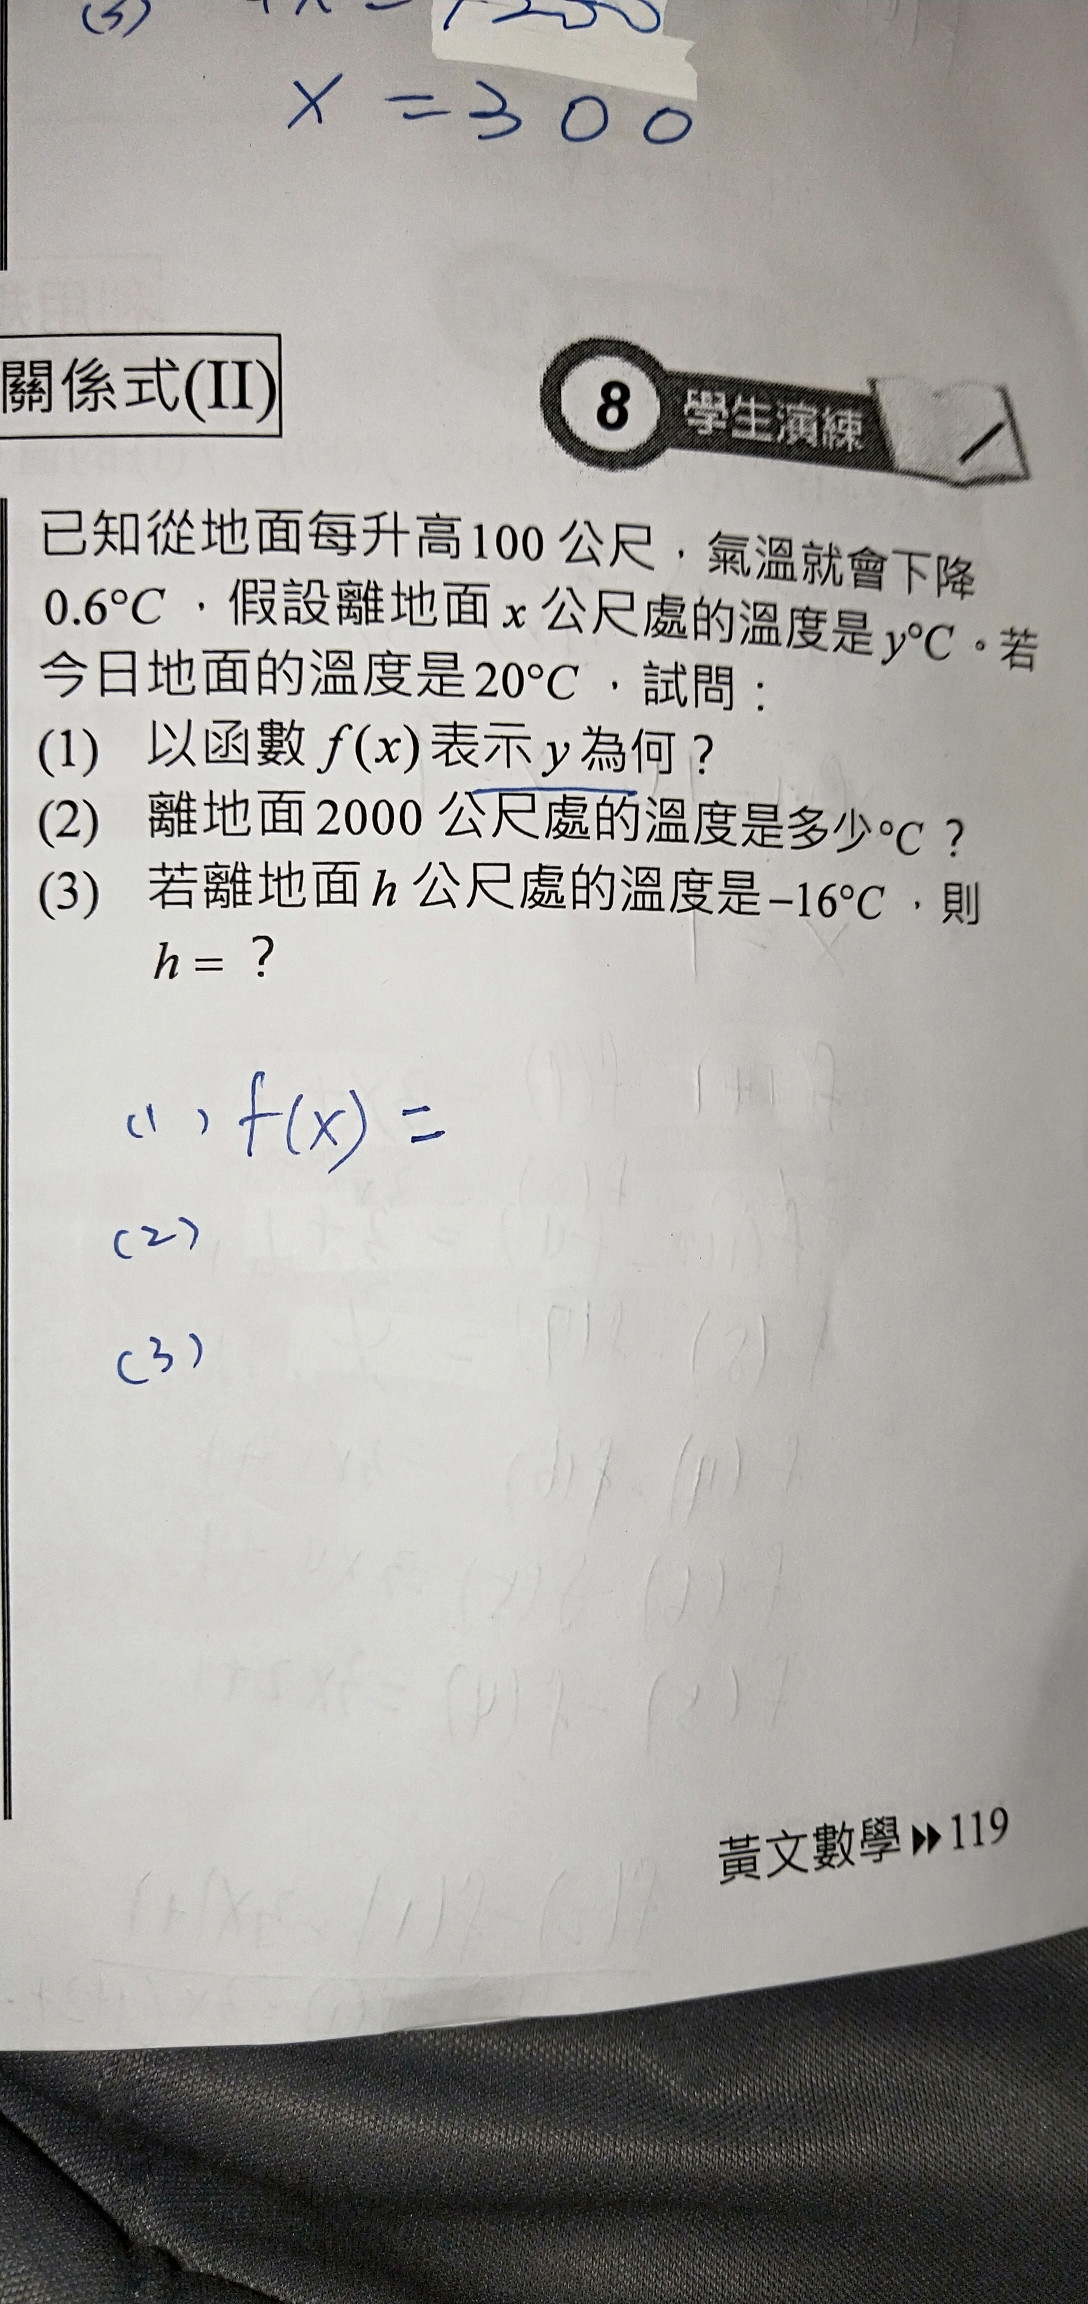 (3)
x = 300
關係式(II)
8 學生演練
已知從地面每升高100 公尺，氣溫就會下降
0.6°C ，假設離地面 x 公尺處的溫度是 y°C 。若
今日地面的溫度是20°C ，試問：
(1) 以函數 f(x) 表示 y 為何？
(2) 離地面 2000 公尺處的溫度是多少°C ？
(3) 若離地面 h 公尺處的溫度是 –16°C ，則
h = ？
(1) f(x) =
(2)
(3)
黃文數學 119